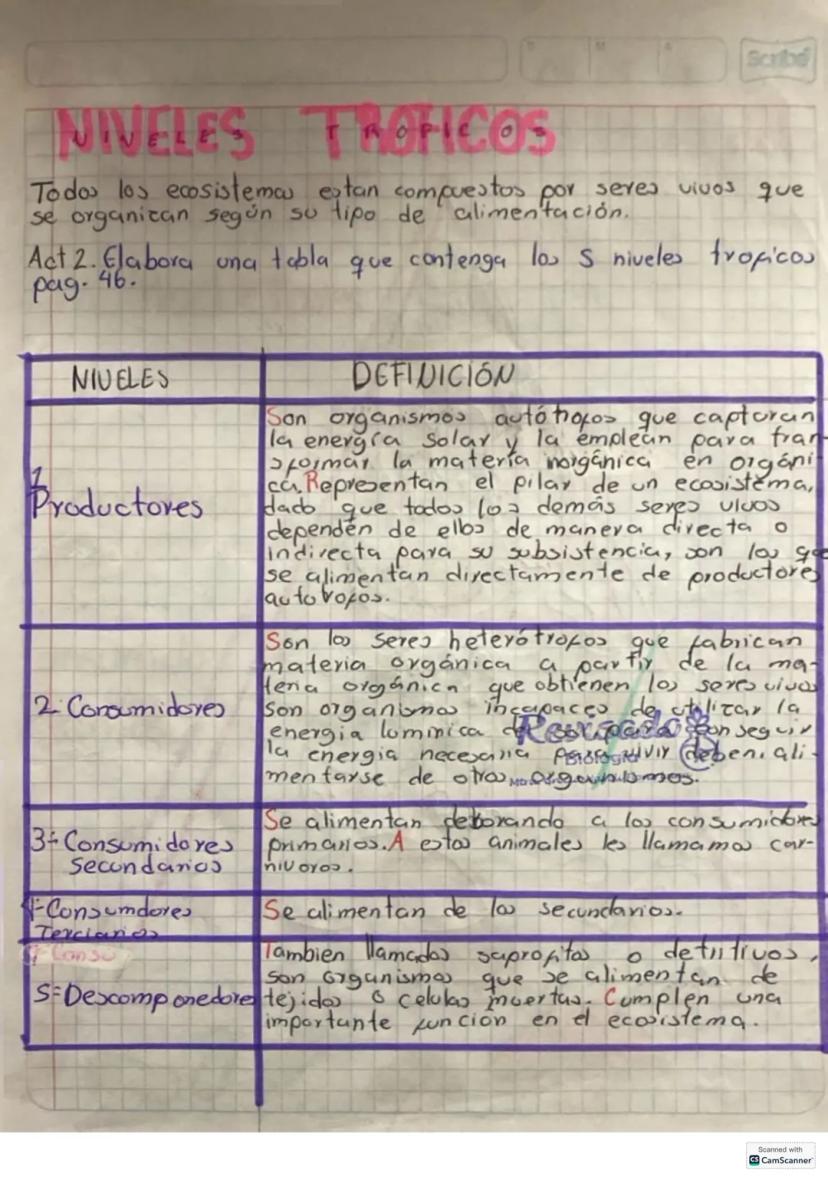 Scribe
NIVELES TROFICOS
NIVELES TROPICOS
Todos los ecosistemas estan compuestos por seres vivos que
se organizan según su tipo de alimentación.
Act 2. Elabora una tabla que contenga los 5 niveles troficos
pag. 46.
NIVELES
DEFINICIÓN
1
Productores
Son organismos autótrofos que capturan
la energía solar y la emplean para tran-
sformar la materia inorgánica en orgáni-
ca. Representan el pilar de un ecosistema,
dado que todos los demás seres vivos
dependen de ellos de manera directa o
indirecta para su subsistencia, son los que
se alimentan directamente de productores
autotrofos.
2. Consumidores
Son los seres heterótrofos que fabrican
materia orgánica a partir de la ma-
teria orgánica que obtienen los seres vivos
son organismos incapaces de utilizar la
energia luminica para conseguir
la energia necesaria para vivir deben ali-
mentarse de otros organismos.
Revisado
Biología
3= Consumidores
secundarios
Se alimentan deborando a los consumidores
primarios. A estos animales les llamamos car-
nivoros.
4=Consumdores
Terciarios
Se alimentan de los secundarios.
Consu
5=Descomponedores
Tambien llamados saprofitos o detritivos,
son organismos que se alimentan de
tejidos o celulas muertas. Cumplen una
importante función en el ecosistema.
Scanned with
CS CamScanner